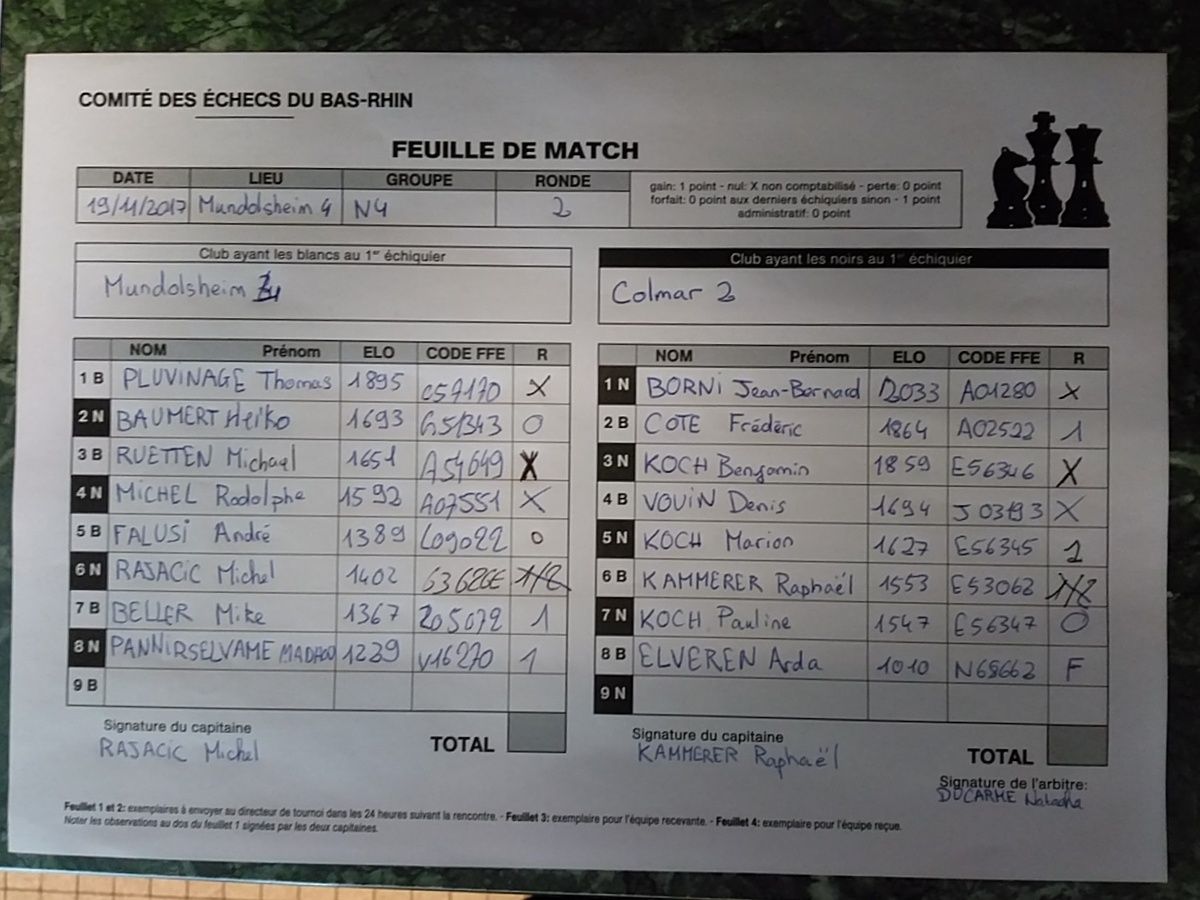 COMITÉ DES ÉCHECS DU BAS-RHIN
FEUILLE DE MATCH
DATE LIEU GROUPE RONDE
19/11/2017 Mundolsheim 4 N4 2
gain: 1 point - nul: X non comptabilisé - perte: 0 point
forfait: 0 point aux derniers échiquiers sinon - 1 point
administratif: 0 point
Club ayant les blancs au 1er échiquier
Mundolsheim 4
Club ayant les noirs au 1er échiquier
Colmar 2
NOM Prénom ELO CODE FFE R
1 B PLUVINAGE Thomas 1895 C57170 X
2 N BAUMERT Heiko 1693 G51343 0
3 B RUETTEN Michael 1651 A54649 X
4 N MICHEL Rodolphe 1592 A07551 X
5 B FALUSI André 1389 L09022 0
6 N RAJACIC Michel 1402 1/2
7 B BELLER Mike 1367 Z05072 1
8 N PANNIRSELVAME 1239 V16270 1
9 B
Signature du capitaine
RAJACIC Michel
TOTAL
NOM Prénom ELO CODE FFE R
1 N BORNI Jean-Bernard 2033 A01280 X
2 B COTE Frédéric 1864 A02522 1
3 N KOCH Benjamin 1859 E56346 X
4 B VOUIN Denis 1694 X
5 N KOCH Marion 1627 E56345 1
6 B KAMMERER Raphaël 1553 E53062 1/2
7 N KOCH Pauline 1547 E56347 0
8 B ELVEREN Arda 1010 N68662 F
9 N
Signature du capitaine
KAMMERER Raphaël
TOTAL
Signature de l'arbitre:
DUCARME Natacha
Feuillet 1 et 2: exemplaires à envoyer au directeur de tournoi dans les 24 heures suivant la rencontre. - Feuillet 3: exemplaire pour l'équipe recevante. - Feuillet 4: exemplaire pour l'équipe reçue.
Noter les observations au dos du feuillet 1 signées par les deux capitaines.